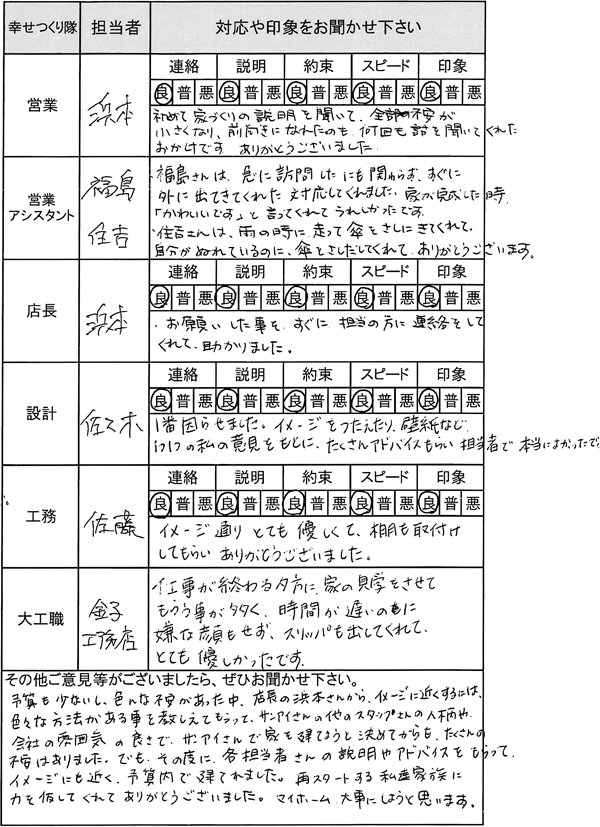 幸せつくり隊 担当者 対応や印象をお聞かせ下さい
営業 浜本
連絡 説明 約束 スピード 印象
良 普 悪 良 普 悪 良 普 悪 良 普 悪 良 普 悪
初めて家づくりの説明を聞いて、全部の不安が
小さくなり、前向きになれたのも、何回も話を聞いてくれた
おかげです ありがとうございました。
営業
アシスタント
福島
住吉
・福島さんは、急に訪問したにも関わらず、すぐに
外に出てきてくれた 対応してくれました。家が完成した時、
「かわいいです」と言ってくれてうれしかったです。
・住吉さんは、雨の時に走って傘をさしにきてくれて、
自分がぬれているのに、傘をさしだしてくれて、ありがとうございます。
店長 浜本
連絡 説明 約束 スピード 印象
良 普 悪 良 普 悪 良 普 悪 良 普 悪 良 普 悪
・お願いした事を、すぐに 担当の方に連絡をして
くれて、助かりました。
設計 佐々木
連絡 説明 約束 スピード 印象
良 普 悪 良 普 悪 良 普 悪 良 普 悪 良 普 悪
1番困らせました。イメージをつたえたり、壁紙など、
1つ1つの私の意見をもとに、たくさんアドバイスもらい 担当者で 本当によかったで
工務 佐藤
連絡 説明 約束 スピード 印象
良 普 悪 良 普 悪 良 普 悪 良 普 悪 良 普 悪
イメージ通り とても 優しくて、棚も取付け
してもらい ありがとうございました。
大工職 金子
工務店
仕事が終わる夕方に、家の見学をさせて
もらう事が多く、時間が遅いのに
嫌な顔もせず、スリッパも出してくれて、
とても 優しかったです。
その他ご意見等がございましたら、ぜひお聞かせ下さい。
予算も少ないし、色んな不安があった中、店長の浜本さんから、イメージに近くするには、
色々な方法がある事を教えてもらって、サンアイさんの他のスタッフさんの人柄や、
会社の雰囲気の良さで、サンアイさんで家を建てようと決めてからも、たくさんの
不安はありました。でも、その度に、各担当者さんの説明やアドバイスをもらって、
イメージにも近く、予算内で建てれました。再スタートする私達家族に
力を仮してくれてありがとうございました。マイホーム大事にしようと思います。